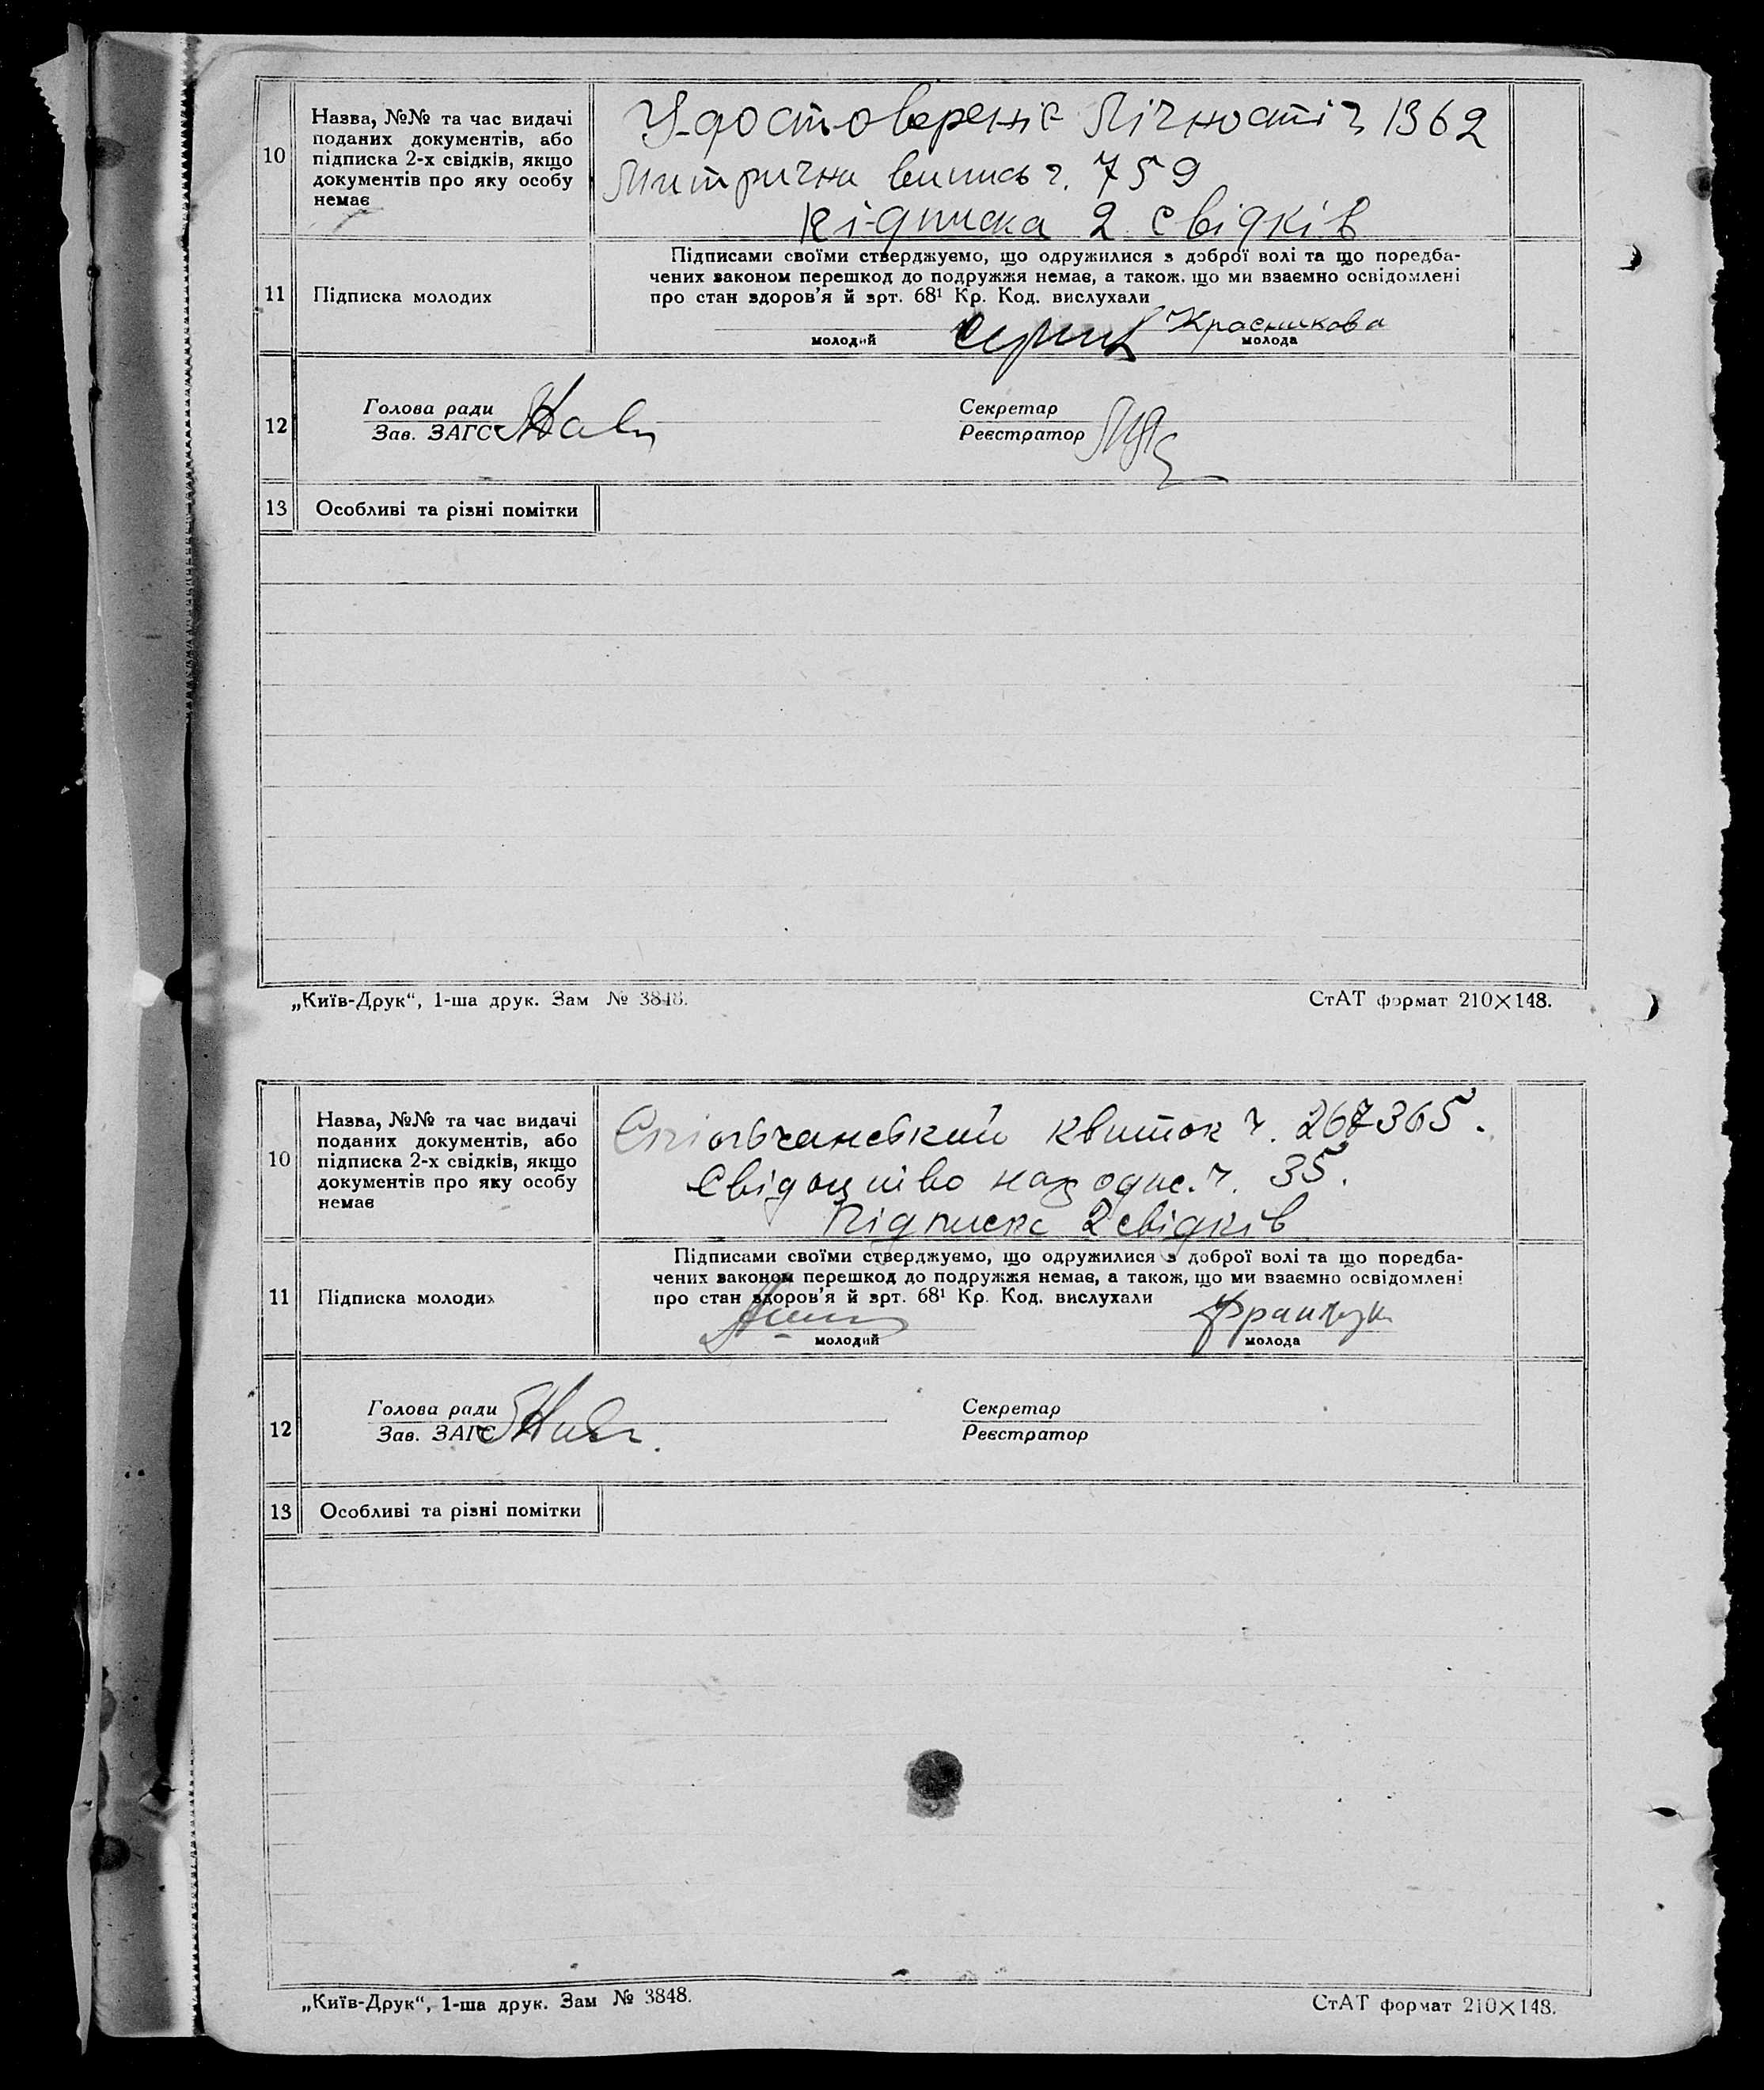 10
Назва, №№ та час видачі
поданих документів, або
підписка 2-х свідків, якщо
документів про яку особу
немає
Удостовереніє Лічності ч 1362
Митрична випись ч. 759
підписка 2 свідків
11
Підписка молодих
Підписами своїми стверджуємо, що одружилися з доброї волі та що поредба-
чених законом перешкод до подружжя немає, а також. що ми взаємно освідомлені
про стан здоров'я й арт. 68¹ Кр. Код. вислухали
Красникова
молодий
молода
12
Голова ради
Зав. ЗАГС
Секретар
Реєстратор
13
Особливі та різні помітки
„Київ-Друк“, 1-ша друк. Зам № 3848.
СтАТ формат 210×148.
10
Назва, №№ та час видачі
поданих документів, або
підписка 2-х свідків, якщо
документів про яку особу
немає
квиток ч. 267365.
Свідоцтво ч. 35.
Підписка 2 свідків
11
Підписка молодих
Підписами своїми стверджуємо, що одружилися з доброї волі та що поредба-
чених законом перешкод до подружжя немає, а також, що ми взаємно освідомлені
про стан здоров'я й арт. 68¹ Кр. Код. вислухали
молодий
молода
12
Голова ради
Зав. ЗАГС
Секретар
Реєстратор
13
Особливі та різні помітки
„Київ-Друк“, 1-ша друк. Зам № 3848.
СтАТ формат 210×148.